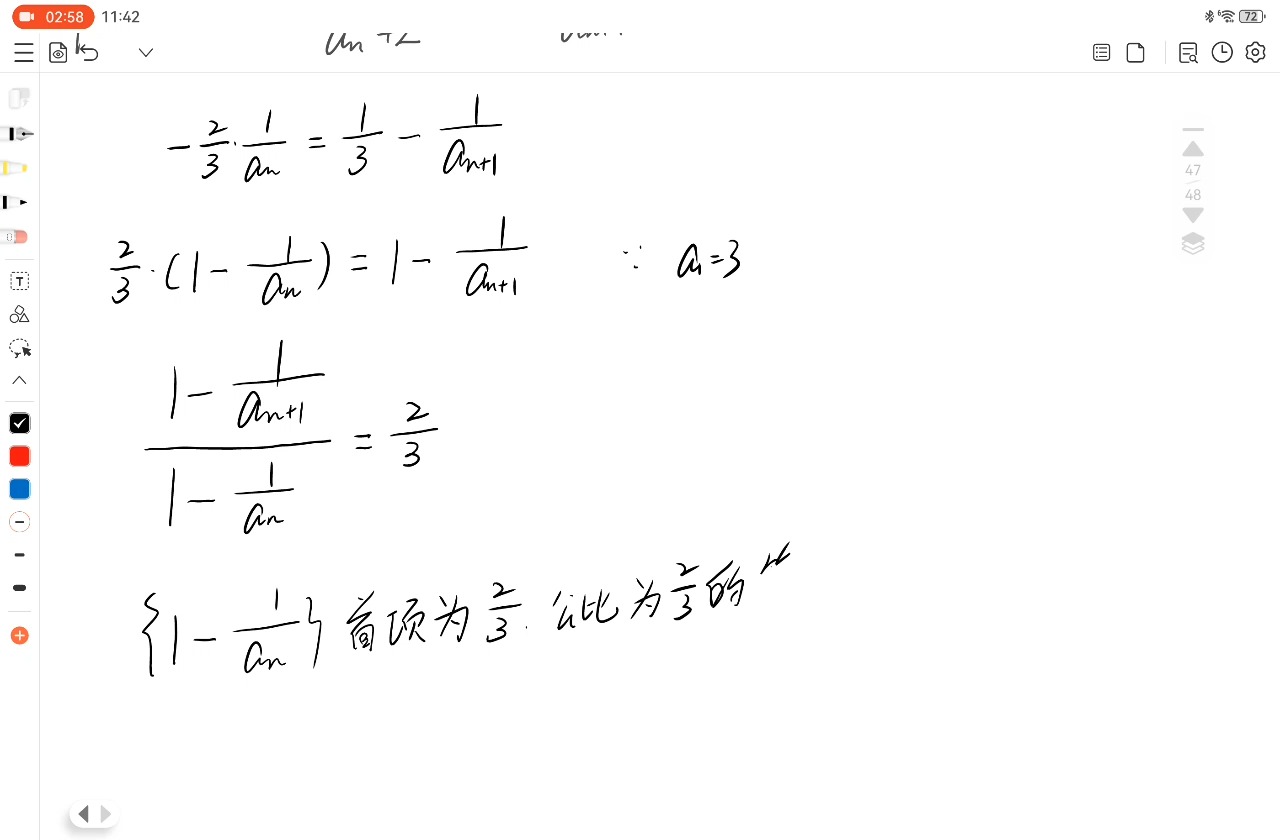 02:58 11:42 72
aₙ+2
-2/3·1/aₙ = 1/3 - 1/aₙ₊₁
2/3·(1 - 1/aₙ) = 1 - 1/aₙ₊₁ ∵ a₁=3
(1 - 1/aₙ₊₁)/(1 - 1/aₙ) = 2/3
{1 - 1/aₙ} 首项为 2/3. 公比为 2/3 的
47
48
T